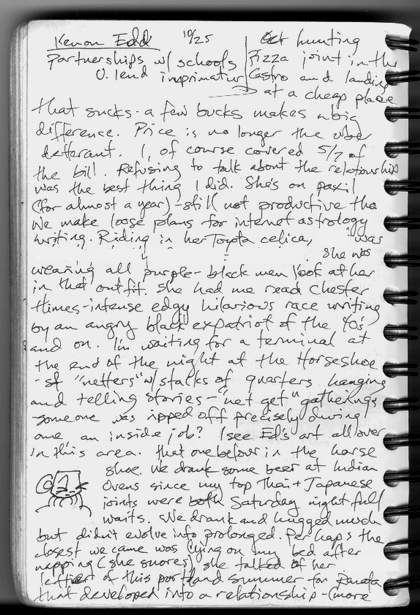 Kenon Edd 10/25
Partnerships w/ schools
U. lend imprimatur
hunting
Pizza joint in the
Castro and landing
at a cheap place
that sucks - a few bucks makes a big
difference. Price is no longer the uber
deterrant. I, of course covered 5/7 of
the bill. Refusing to talk about the relationship
was the best thing I did. She's on paxil
(for almost a year) - still not productive tho
We make loose plans for internet astrology
writing. Riding in her Toyota celica, I was
she was
wearing all purple - black men look at her
in that outfit. She had me read Chester
Himes - intense edgy hilarious race writing
by an angry black expatriot of the 40's
and on. I'm waiting for a terminal at
the end of the night at the Horseshoe
"netters" w/ stacks of quarters hanging
and telling stories - "net get" gatherings
someone was ripped off precisely during
one an inside job? I see Ed's art all over
in this area. that one before in the horse
shoe. We drank some beer at Indian
Ovens since my top Thai + Japanese
joints were both Saturday night full
waits. We drank and hugged much
but didn't evolve into prolonged. Perhaps the
closest we came was lying on my bed after
napping (she snores), she talked of her
letter of this portland summer
that developed into a relationship - (more